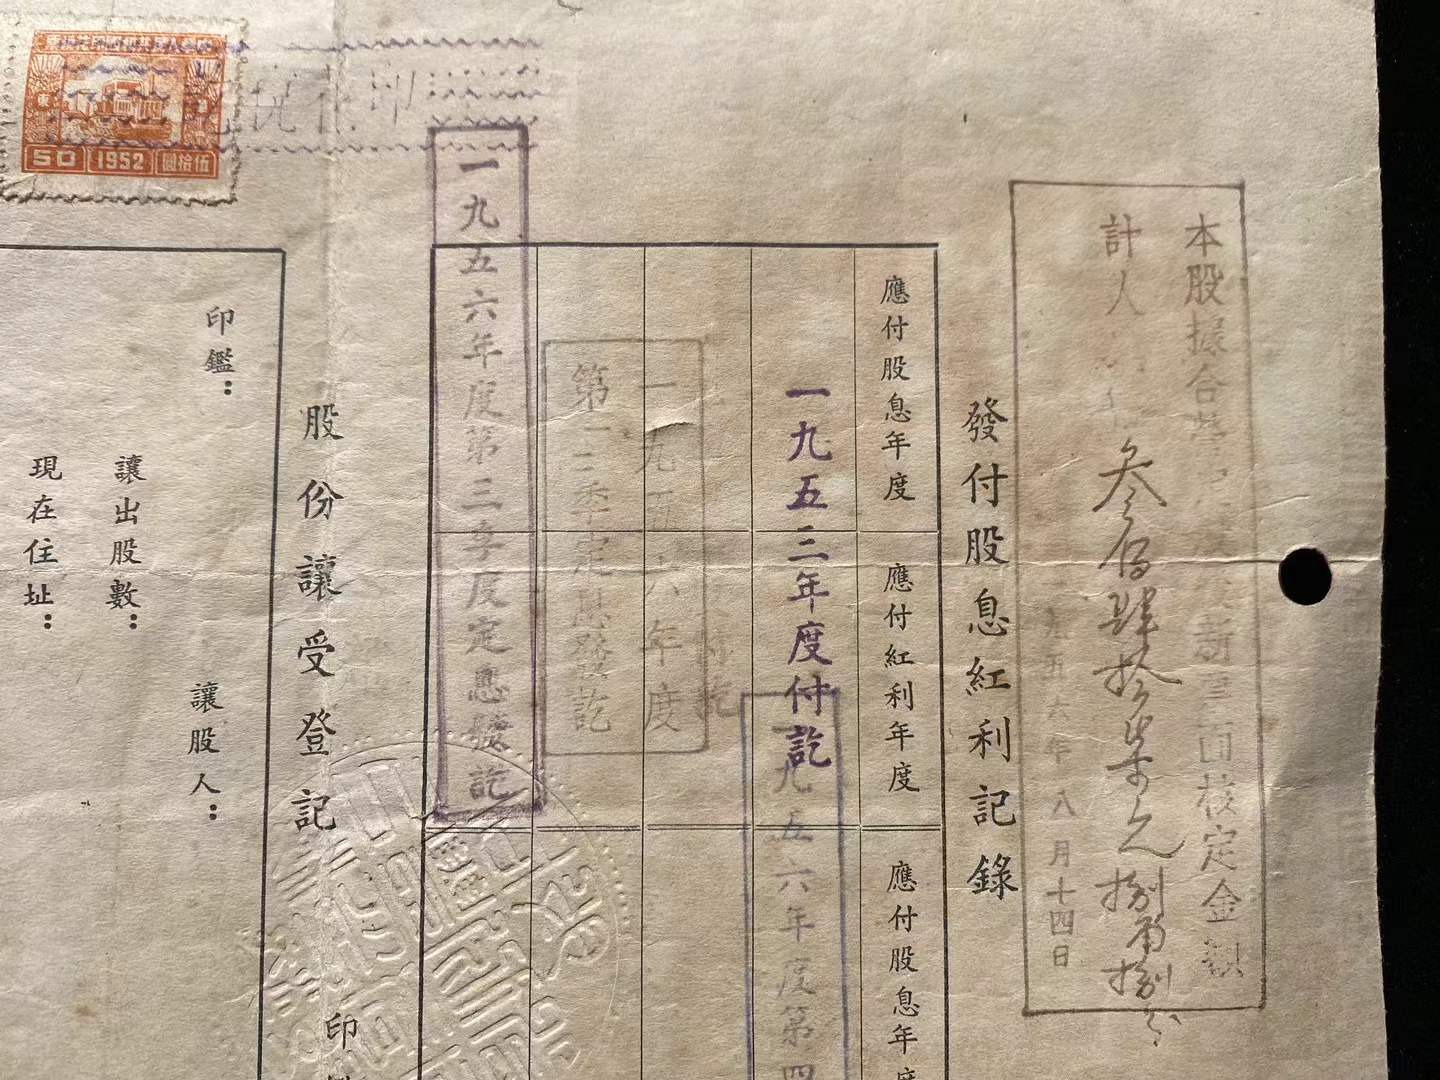 本股據合營
新
核定金額
計人
叁佰肆拾柒元捌角捌分
五六年八月十四日
發付股息紅利記錄
應付股息年度
應付紅利年度
應付股息年
一九五三年度付訖
九五六年度第四
付訖
一九五六年度
第一二季定息發訖
一九五六年度第三季度定息發訖
股份讓受登記
印
印鑑：
讓股人：
讓出股數：
現在住址：
50
1952
伍拾圓